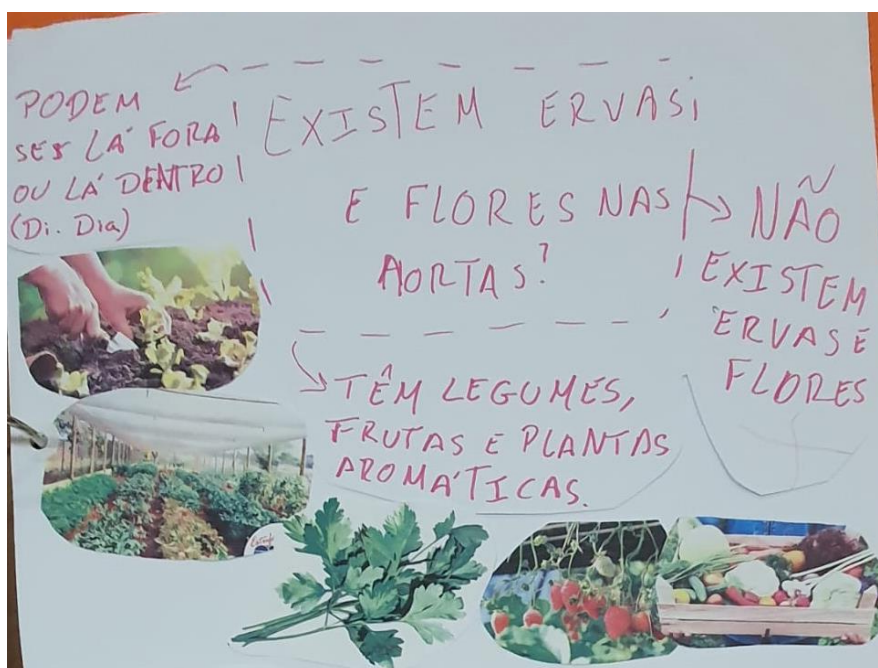 PODEM
SER LÁ FORA
OU LÁ DENTRO
(Di. Dia)
EXISTEM ERVAS
E FLORES NAS
HORTAS?
NÃO
EXISTEM
ERVAS E
FLORES
TÊM LEGUMES,
FRUTAS E PLANTAS
AROMÁTICAS.